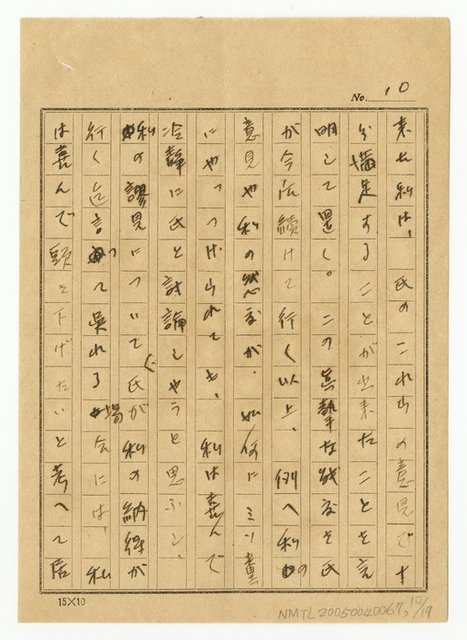 No. 10
来た私は、氏のこれ等の意見で十
分満足することが出来たことを言
明して置く。この真摯な態度を氏
が今後続けて行く以上、例へ私の
意見や私の態度が、如何にミソ糞
にやっつけられても、私は喜んで
冷静に氏と討論しやうと思ふし、
私の謬見について氏が、私の納得が
行く迄言って呉れる場合には、私
は喜んで頭を下げたいと考へて居
15×10
NMTL20050040067, 10/17